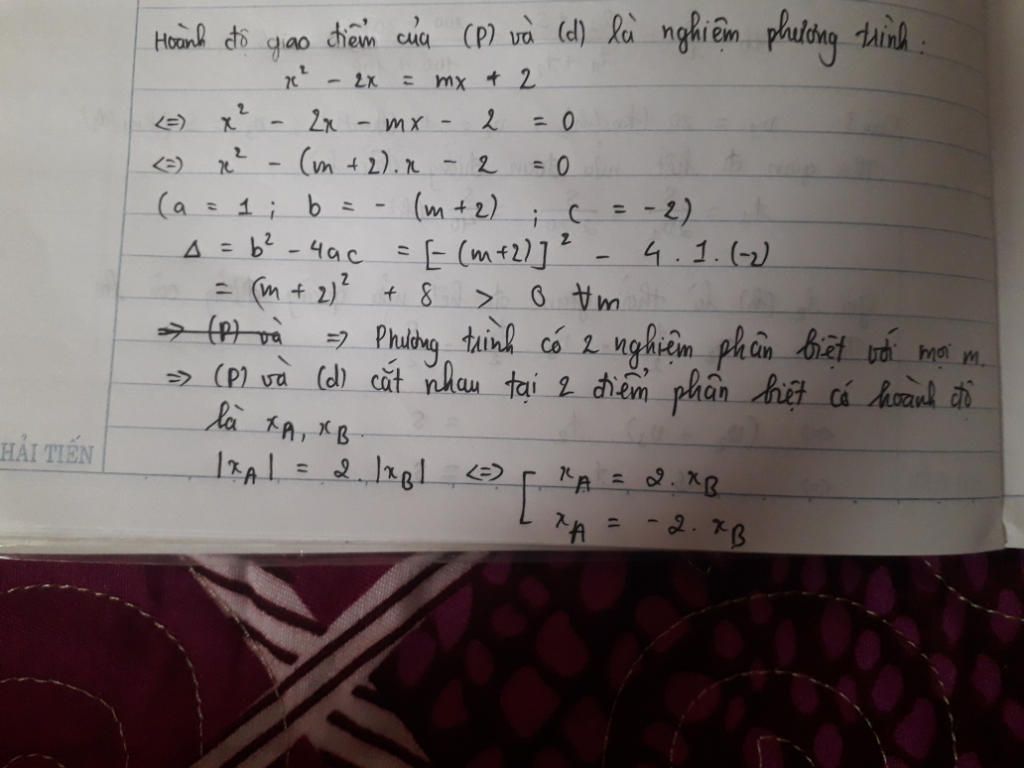 Hoành độ giao điểm của (P) và (d) là nghiệm phương trình:
x² - 2x = mx + 2
<=> x² - 2x - mx - 2 = 0
<=> x² - (m + 2).x - 2 = 0
(a = 1 ; b = - (m+2) ; c = -2)
Δ = b² - 4ac = [-(m+2)]² - 4 . 1 . (-2)
= (m + 2)² + 8 > 0 ∀m
=> (P) và => Phương trình có 2 nghiệm phân biệt với mọi m.
=> (P) và (d) cắt nhau tại 2 điểm phân biệt có hoành độ
là x_A, x_B
HẢI TIẾN
|x_A| = 2. |x_B| <=> [ x_A = 2. x_B
x_A = -2. x_B